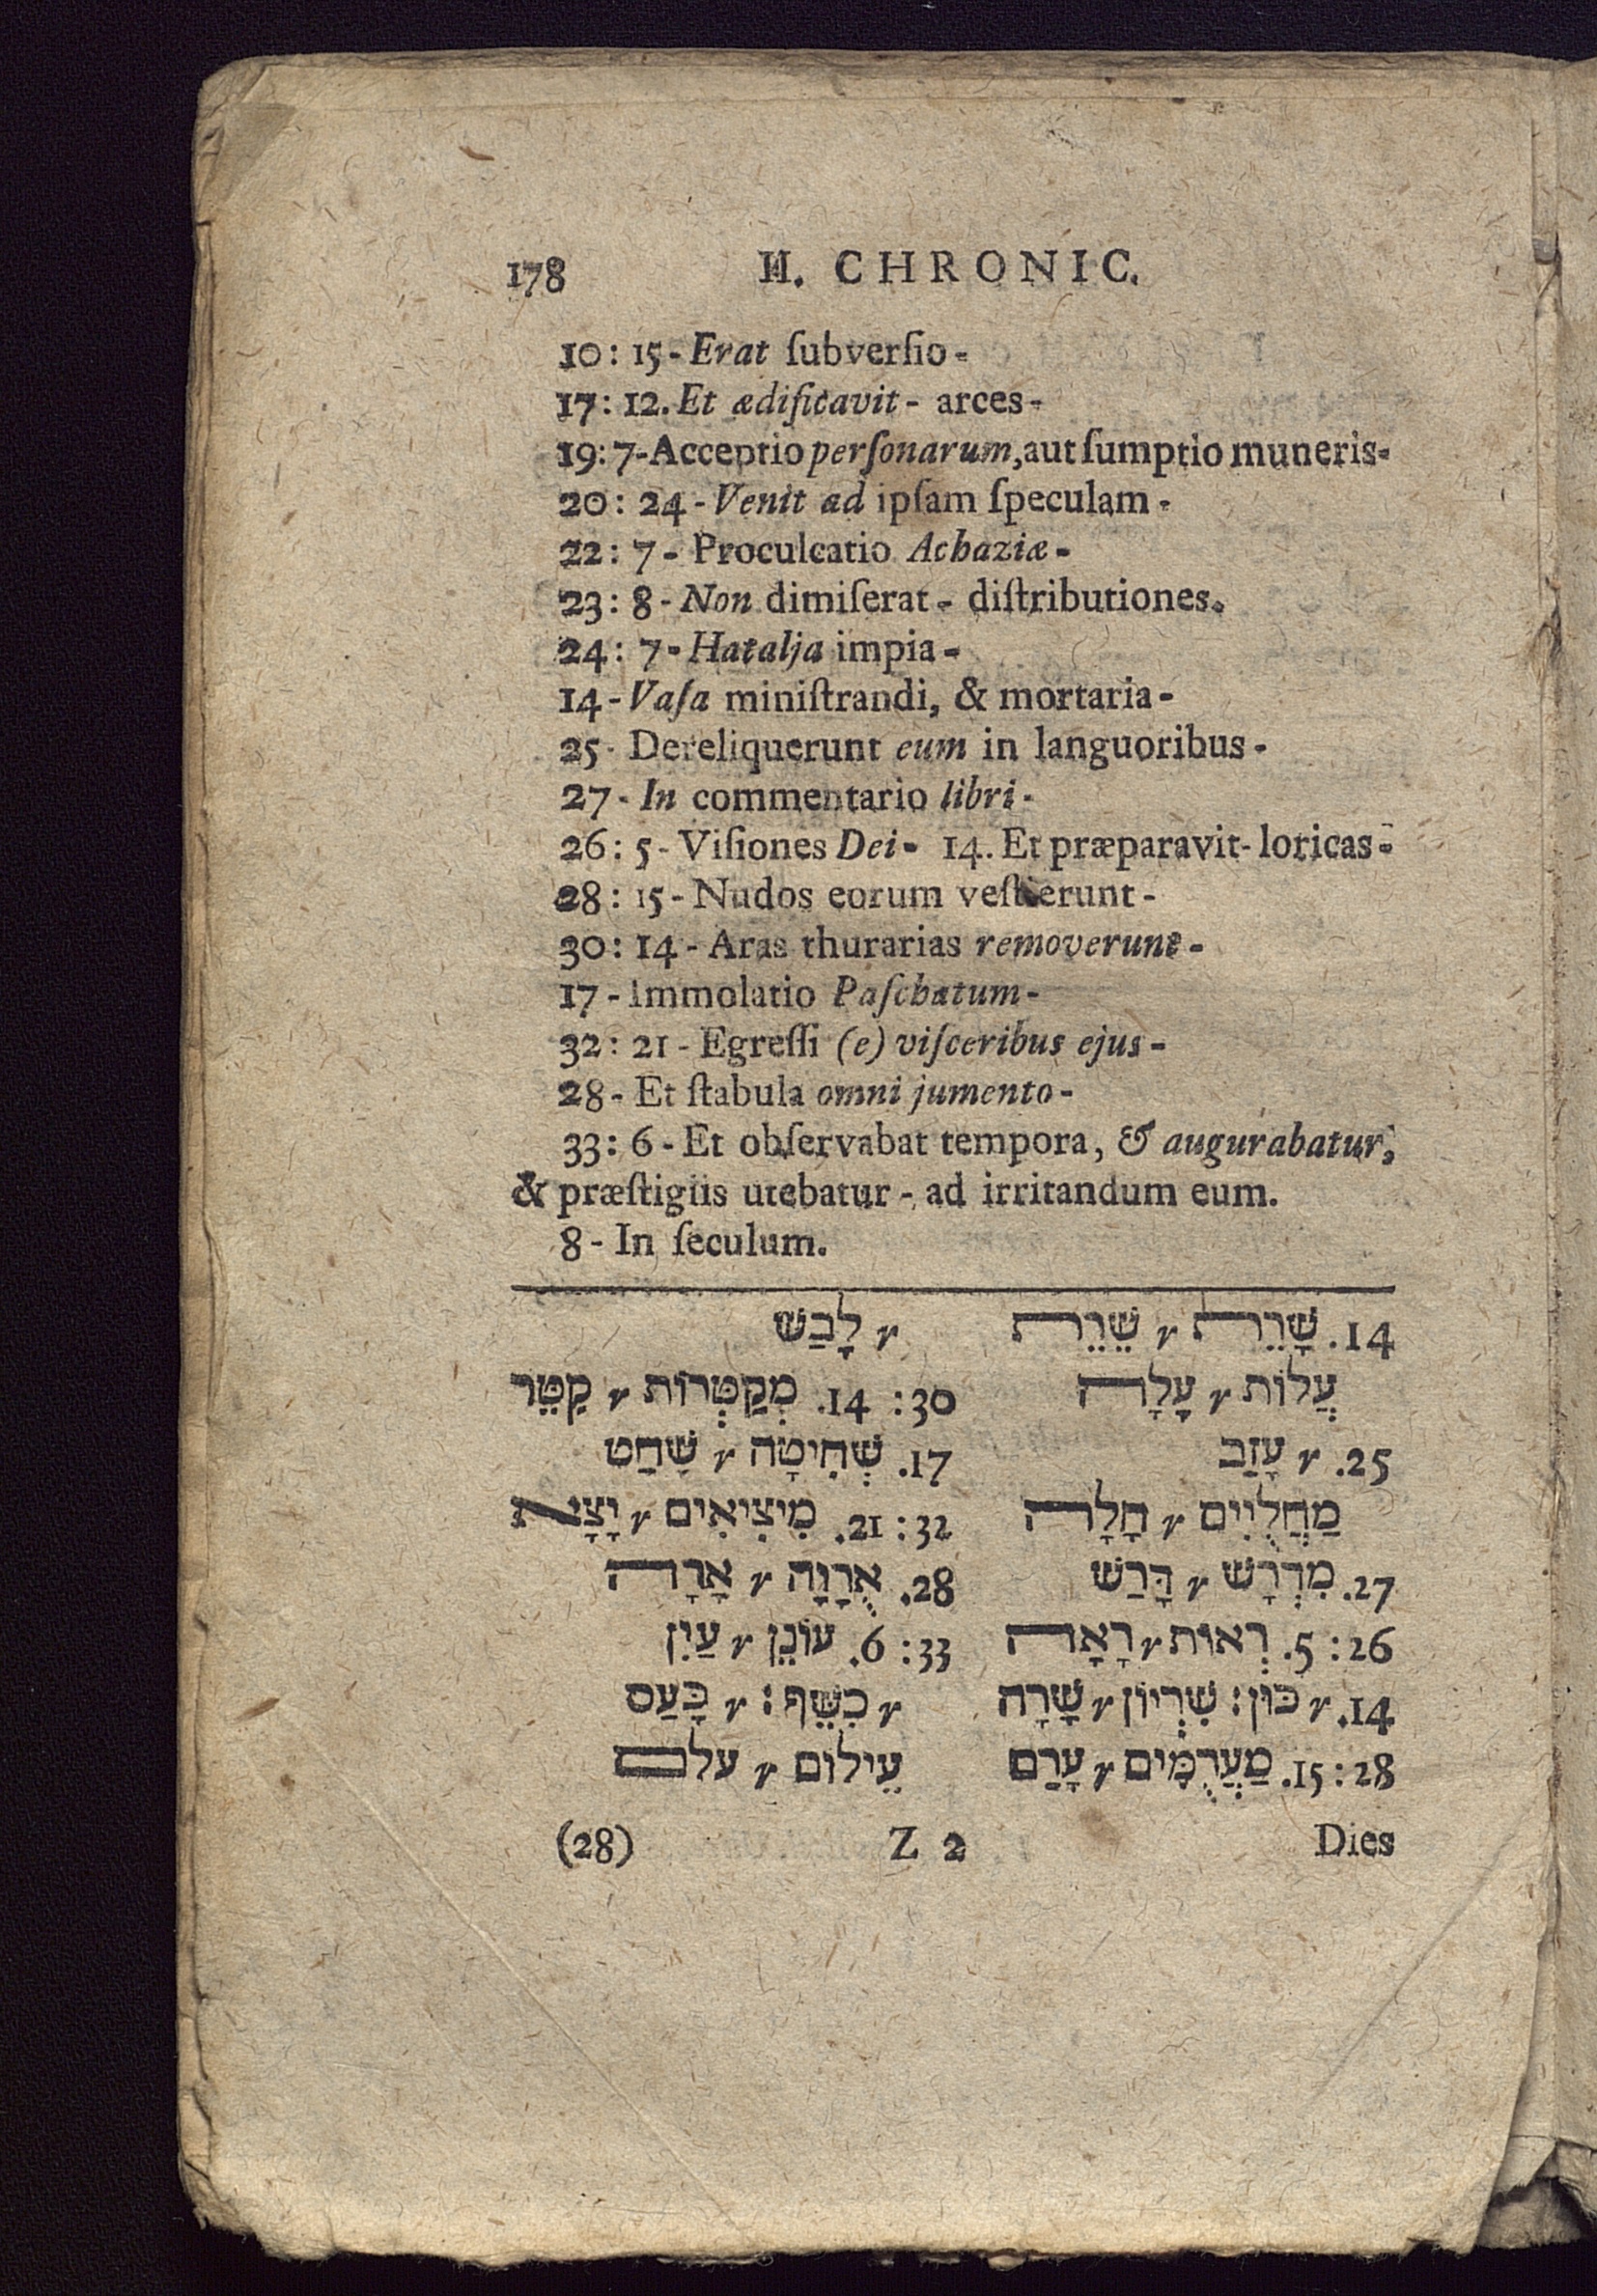 178 II. CHRONIC.
10: 15-Erat ſubverſio-
17: 12. Et ædificavit- arces-
19: 7-Acceptio perſonarum, aut ſumptio muneris-
20: 24-Venit ad ipſam ſpeculam-
22: 7- Proculcatio Achaziæ-
23: 8-Non dimiſerat- diſtributiones.
24: 7-Hatalja impia-
14-Vaſa miniſtrandi, & mortaria-
25- Dereliquerunt eum in languoribus-
27-In commentario libri-
26: 5-Viſiones Dei- 14. Et præparavit- loricas-
28: 15-Nudos eorum veſtierunt-
30: 14-Aras thurarias removerunt-
17-Immolatio Paſchatum-
32: 21-Egreſſi (e) viſceribus ejus-
28-Et ſtabula omni jumento-
33: 6-Et obſervabat tempora, & augurabatur,
& præſtigiis utebatur- ad irritandum eum.
8-In ſeculum.
14. שָׁרֵת r שֵׁרֵת
עֲלוֹת r עָלָה
25. r עָזַב
מַחֲלֻיִים r חָלָה
27. מִדְרָשׁ r דָּרַשׁ
26: 5. רְאוֹת r רָאָה
14. r כּוּן: שִׁרְיוֹן r שָׁרָה
28: 15. מַעֲרֻמִּים r עָרַם
r לָבַשׁ
30: 14. מְקַטְּרוֹת r קִטֵּר
17. שְׁחִיטָה r שָׁחַט
32: 21. מִיצִיאִים r יָצָא
28. אֻרָוָה r אָרָה
33: 6. עוֹנֵן r עַיִן
r כִּשֵּׁף: r כָּעַס
עֵילוֹם r עלם
(28) Z 2 Dies